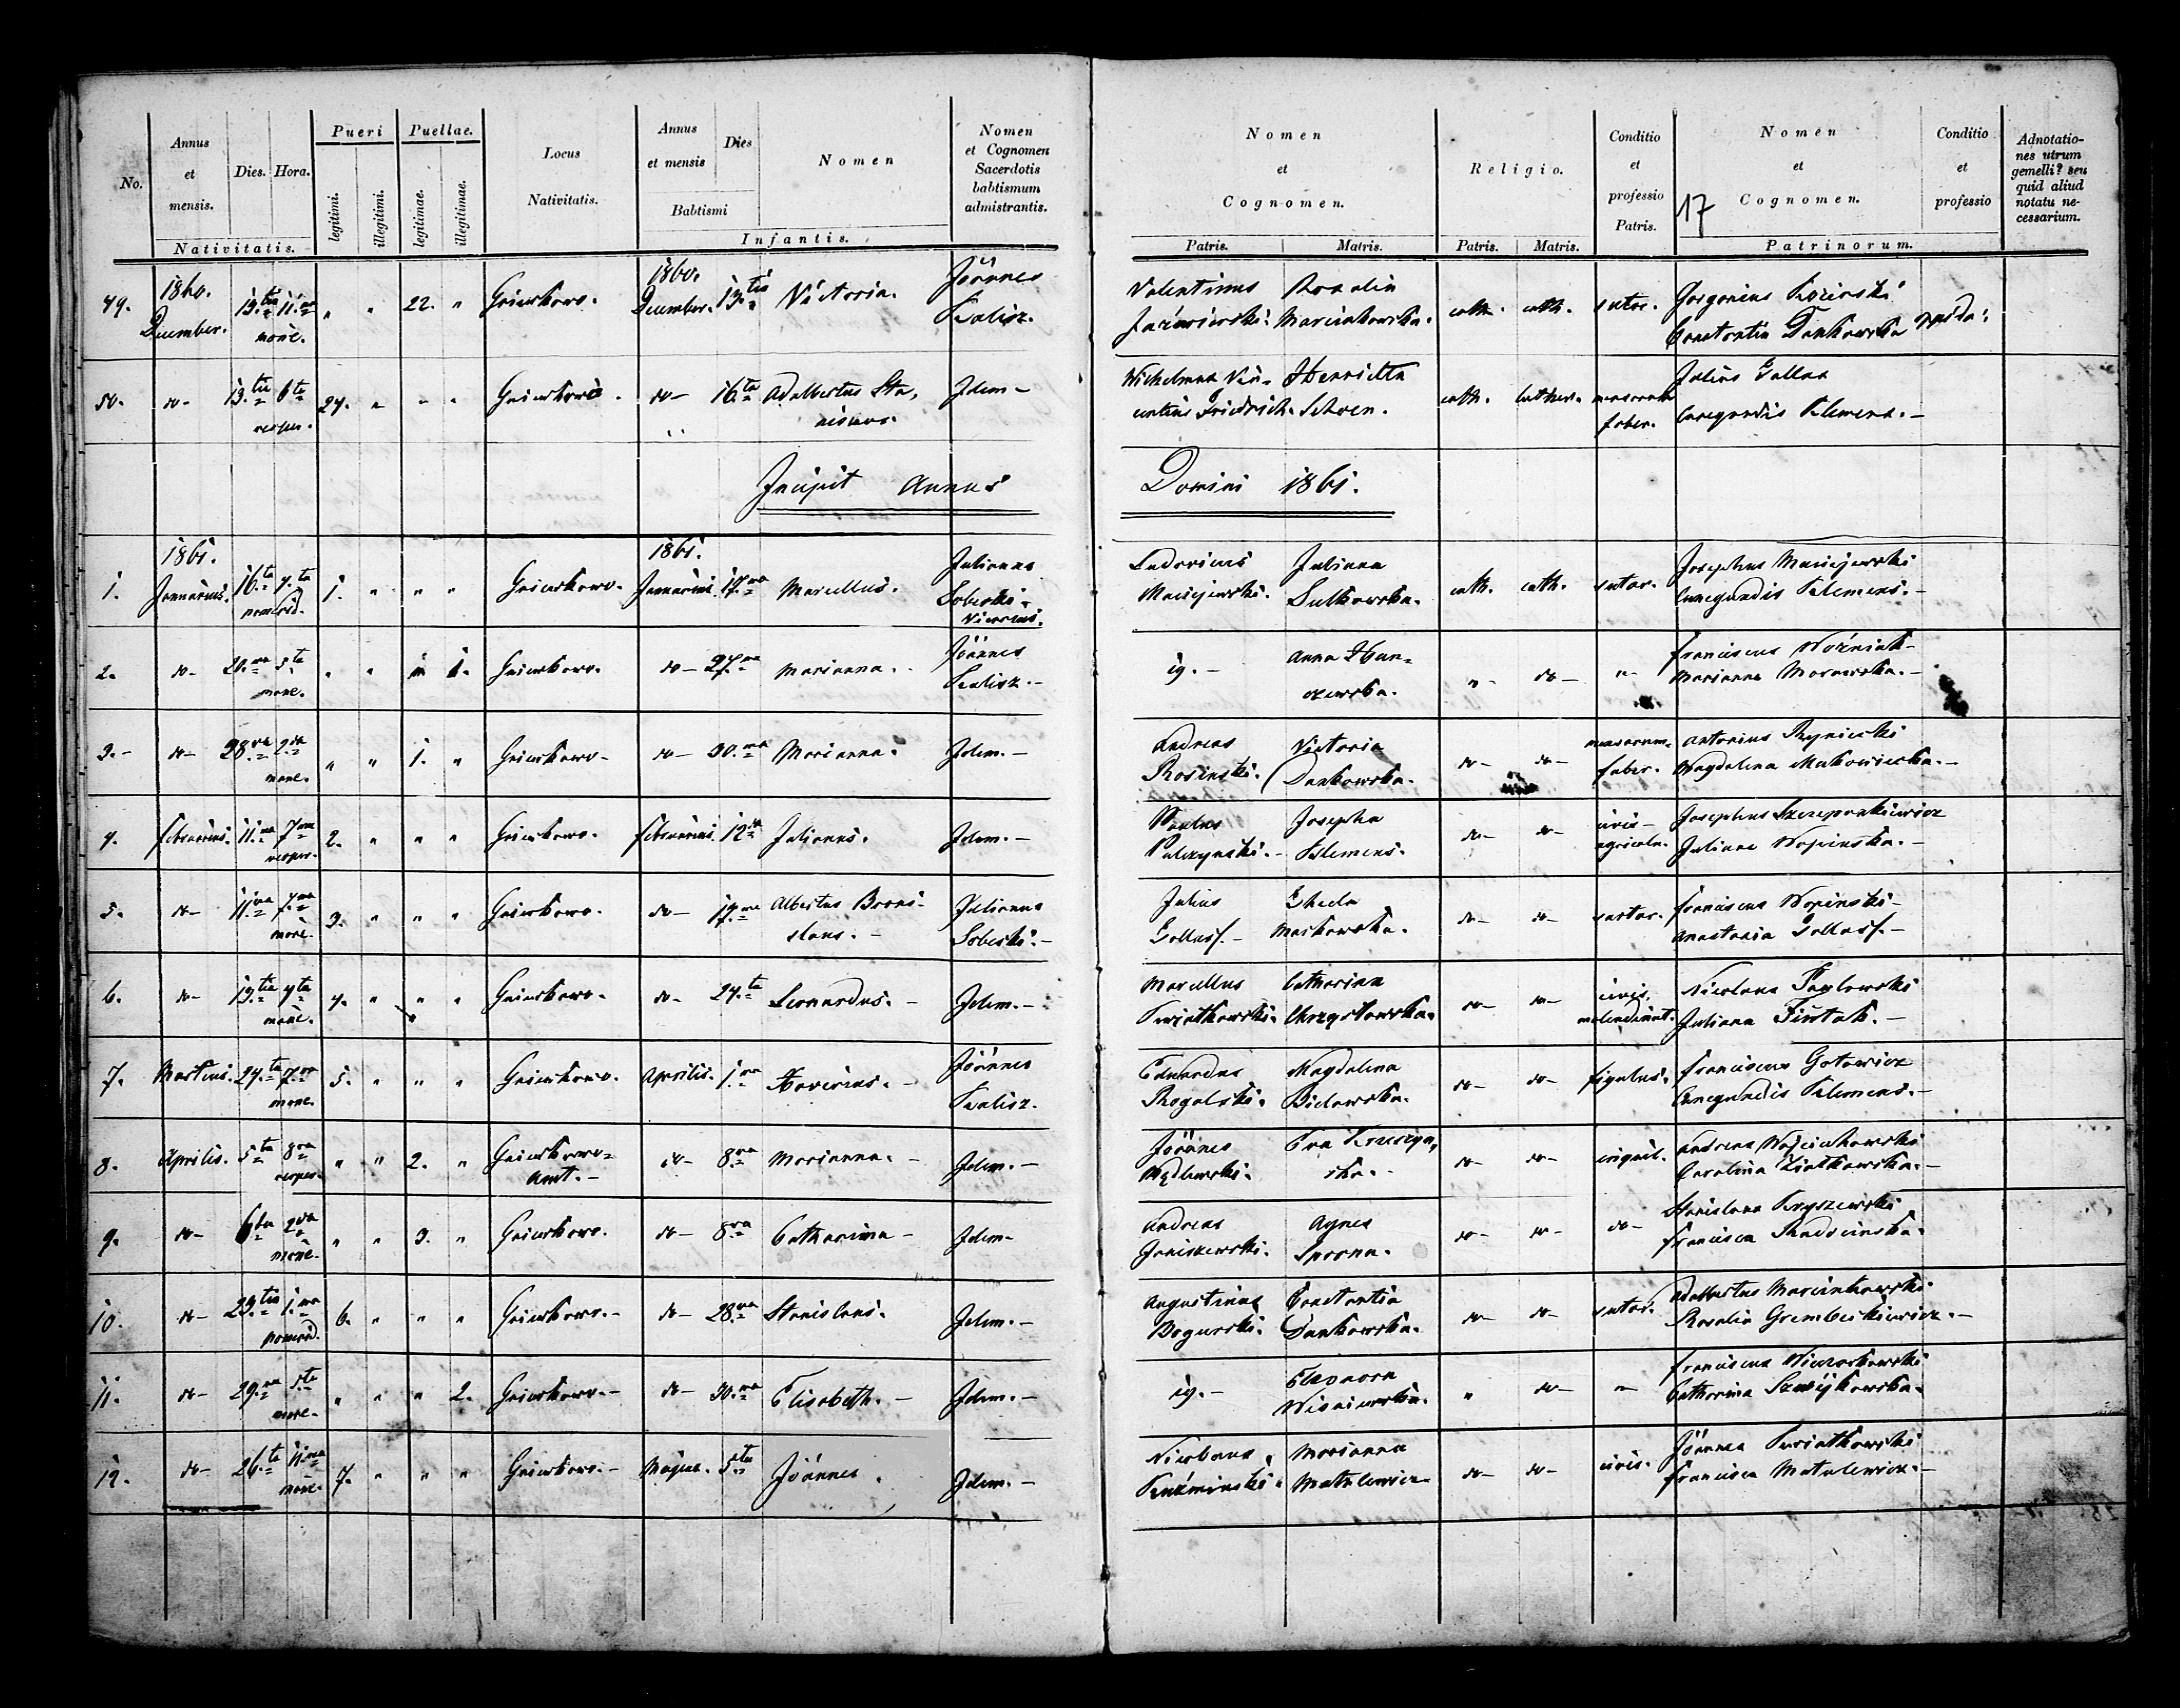 No.
Annus et mensis.
Dies.
Hora.
Nativitatis.
Pueri
legitimi.
illegitimi.
Puellae.
legitimae.
illegitimae.
Locus Nativitatis.
Annus et mensis
Dies
Babtismi
Nomen
Infantis.
Nomen et Cognomen Sacerdotis babtismum admistrantis.
Nomen et Cognomen.
Patris.
Matris.
Religio.
Patris.
Matris.
Conditio et professio Patris.
17
Nomen et Cognomen.
Conditio et professio
Patrinorum.
Adnotationes utrum gemelli? seu quid aliud notatu necessarium.
49. 1860. December. 13.tia 11.ma mane. " " 22. " Gniewkowo. 1860. December. 13.tia Victoria. Joannes Kalisz. Valentinus Rosalia Marciakowska. cath. cath. sutor. Constantia Dankowska
50. do- 13.tia 6ta vesper. 24. " " " Gniewkowo. do- 16.ta Adalbertus Idem- Friedrich. Henrietta Schoen. cath. luther. faber. Julius Gallas Cunegundis Klemens.-
Incipit Annus Domini 1861.
1. 1861. Januarius. 16.ta 4.ta pomerid. 1. " " " Gniewkowo. 1861. Januarius. 17.ma Marcellus. Julianus Sobeski. Vicarius. Ludovicus Maciejewski. Juliana Sulkowska. cath. cath. sutor. Josephus Maciejewski Cunegundis Klemens.-
2. do- 20.ma 5.ta mane. " " 1. Gniewkowo. do- 27.ma Marianna. Joannes Kalisz.- ig.- Anna " do- "- Franciscus Woźniak- Marianna Morawska.-
3.- do- 28.va 2.da mane. " " 1. " Gniewkowo- do- 30.ma Marianna. Idem.- Andreas Rosinski. Victoria Dankowska. do- do- faber. Antonius Magdalena Makowiecka.-
4. Februarius. 11.ma 7.ma vesper. 2. " " " Gniewkowo. Februarius. 12.da Julianus. Idem.- Paulus Palczynski.- Josepha Klemens. do- do- civis- agricola. Josephus Szczepankiewicz Juliana Wopinska.-
5. do- 11.ma 7.ma mane. 3. " " " Gniewkowo. do- 17.ma Albertus Bronislaus.- Julianus Sobeski.- Julius Gallass.- Maskowska. do- do- sartor. Franciscus Wopinski- Anastasia Gallass.-
6. do- 13.tia 4ta mane. 4. " " " Gniewkowo. do- 24.ta Leonardus.- Idem.- Marcellus Kwiatkowski. Catharina do- do- civis. Nicolaus Pawlowski Juliana
7. Martius. 24.ta 7.ma mane. 5. " " " Gniewkowo. Aprilis. 1.ma Xaverius.- Joannes Kalisz. Eduardus Rogalski. Magdalena Bielawska. do- do- figulus. Franciscus Gotowicz Cunegundis Klemens.-
8. Aprilis. 5ta 8va vesper. " " 2. " Gniewkowo- Amt.- do- 8.va Marianna.- Idem.- Joannes Eva do- do- inquil. Andreas Wojciechowski Carolina Ziatkowska.-
9. do- 6ta 2da mane. " " 3. " Gniewkowo. do- 8va Catharina- Idem- Andreas Janiszewski. Agnes Sporna. do- do- do- Stanislaus Kryszewski Francisca
10. do- 23.tia 1.ma pomerid. 6. " " " Gniewkowo.- do- 28.va Stanislaus. Idem.- Augustinus Bogurski. Constantia Dankowska. do- do- sutor. Adalbertus Marcinkowski Rosalia
11. do- 29.na 5.ta mane. " " " 2. Gniewkowo.- do- 30.ma Elisabeth.- Idem.- ig.- Eleonora Wisniewska. " do- "- Franciscus Catharina
12. do- 26.ta 11.ma mane. 7. " " " Gniewkowo.- Majus. 5.ta Joannes. Idem.- Nicolaus Kuźminski. Marianna Matulewicz do- do- civis. Joannes Kwiatkowski Francisca Matulewicz.-